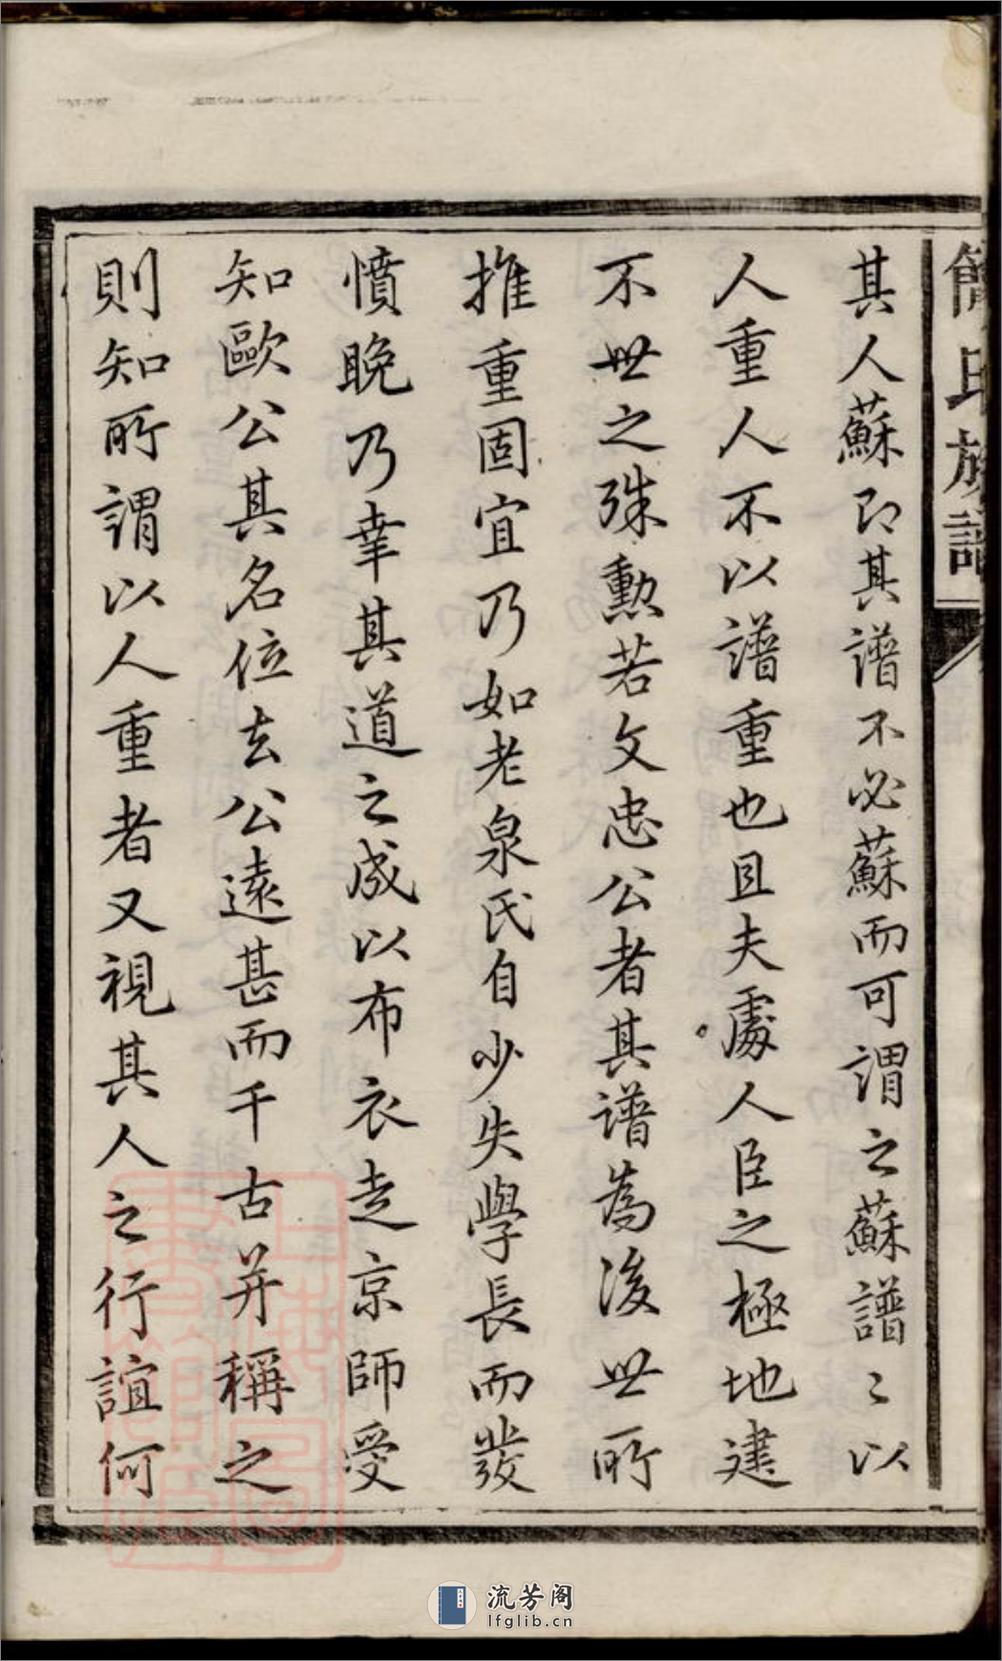 簡氏族譜
其人蘇即其譜不必蘇而可謂之蘇譜〻以
人重人不以譜重也且夫處人臣之極地建
不世之殊勲若文忠公者其譜為後世所
推重固宜乃如老泉氏自少失學長而發
憤晚乃幸其道之成以布衣走京師受
知歐公其名位去公遠甚而千古并稱之
則知所謂以人重者又視其人之行誼何
上海圖書館藏
流芳阁
lfglib.cn